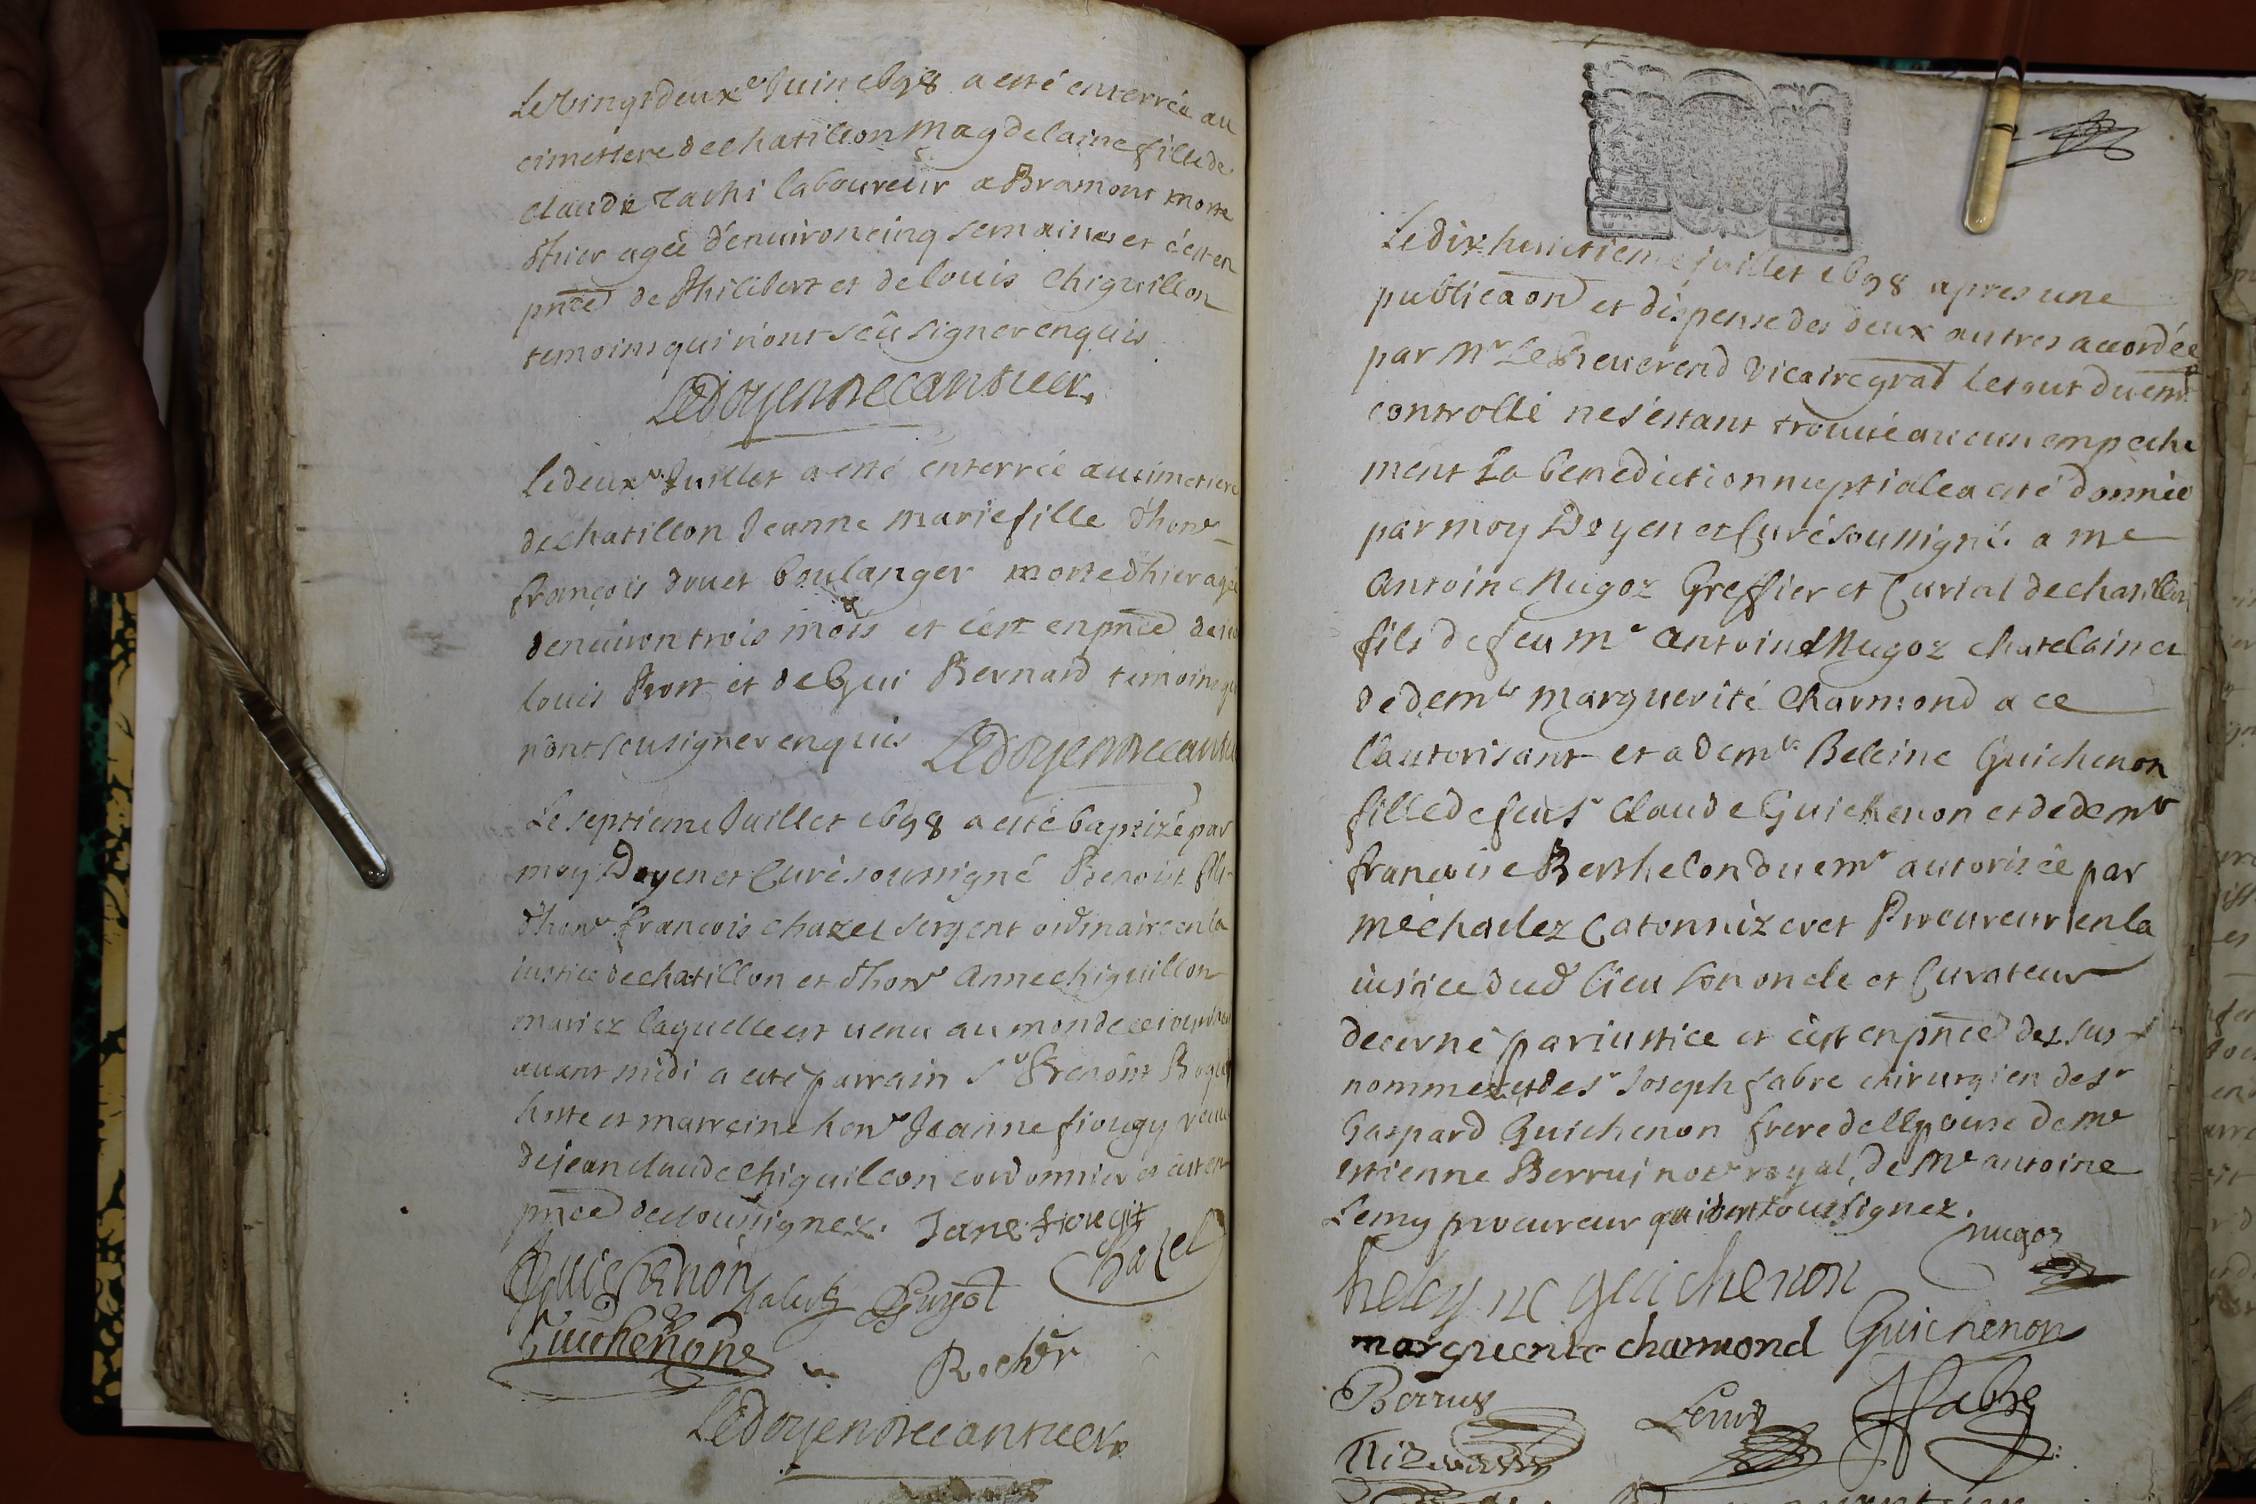 Le vingt deuxe Juin 1698 a esté enterrée au
cimettere de chatillon Magdelaine fille de
claude tachi laboureur a Bramont morte
d'hier agée d'environ cinq semaines et c'est en
pnce de Philibert et de louis Chiquillon
temoins qui n'ont sçû signer enquis
Le doyen
Le deuxe Juillet a esté enterrée au cimetiere
de chatillon Jeanne Marie fille d'honr
françois drouet boulanger morte d'hier agée
d'enuiron trois mois et c'est en pnce de
louis Prost et de Gui Bernard temoins qui
n'ont sceu signer enquis Le doyen
Le septieme Juillet 1698 a esté baptizé par
moy Doyen et Curé soussigné Benoist fils
d'honr françois chazel sergent ordinaire en la
iustice de chatillon et d'honr Anne chiquillon
mariez laquelle est venu au monde
auant midi a esté parrain Sr Benoist
hoste et marreine honr Jeanne fiougy veuue
de jean claude chiquillon cordonnier et c'est en
pnce de soussignez. Jane fiougit
Guichenon Guyot Chazel
Guichenone
Le doyen
Le dix huictieme juillet 1698 apres une
publicaon et dispense des deux autres accordée
par Mr Le Reuerend Vicaire gnal le tout duemt
controllé ne s'estant trouué aucun empeche
ment La benediction nuptiale a esté donnée
par moy Doyen et Curé soussigné a me
Antoine Nugoz Greffier et Curial de chatillon
fils de feu Mr Antoine Nugoz chatelain et
de demlle Marguerite Charmond a ce
l'autorisant et a demlle Heleine Guichenon
fille de feu Sr Claude Guichenon et de demlle
françoise Berthelon duemt autorisée par
Me Niz et Procureur en la
iustice dud lieu son oncle et Curateur
decerné par iustice et c'est en pnce des sus
nommez et de Sr Joseph fabre chirurgien de Sr
Gaspard Guichenon frere de l'Epouse de Me
Estienne Berrui notre royal, de Me Antoine
Lemy procureur qui sont soussignez.
nugoz
heleyne guichenon
marguerite charmond Guichenon
Berruy Lemy Jfabre